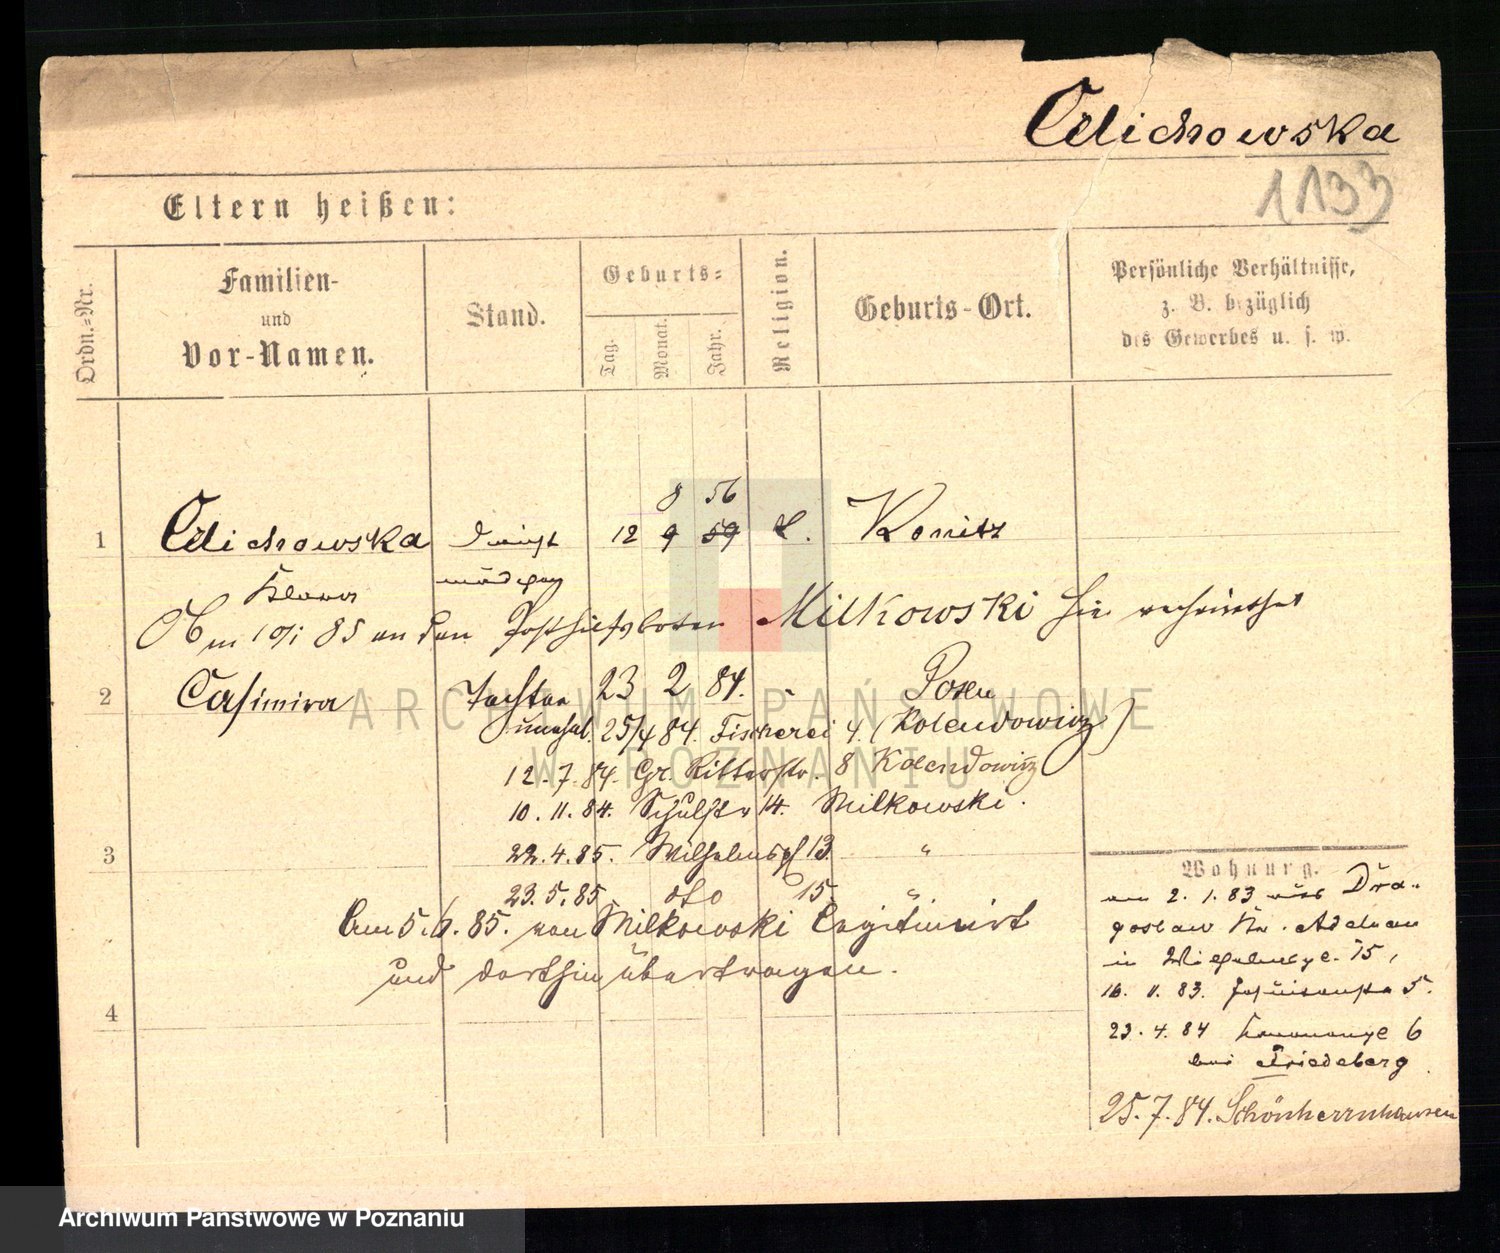 Celichowska
1133
Eltern heißen:
Ordn.-Nr.
Familien-
und
Vor-Namen.
Stand.
Geburts-
Tag.
Monat.
Jahr.
Religion.
Geburts-Ort.
Persönliche Verhältnisse,
z. B. bezüglich
des Gewerbes u. s. w.
8 56
1 Celichowska Dienst 12 9 59 k. Konitz
mädchen
Am 10/1 85 an den Posthilfsboten Milkowski hier verheirathet
2 Casimira Tochter 23 2 84. Posen
unehel. 25/4 84. Fischerei 4. (Kolendowicz)
12. 7. 84. Gr. Ritterstr. 8 Kolendowicz
10. 11. 84. Schulstr 14. Milkowski.
3 22. 4. 85. Wilhelmspl 13 "
23. 5. 85 dto 15 "
Am 5. 6. 85. von Milkowski legitimirt
und dorthin übertragen.
4
Wohnung.
am 2. 1. 83 aus Dra-
goslaw Kr. Adelnau
in 15,
16. 11. 83. 5.
23. 4. 84 6
bei Friedeberg
25. 7. 84. Schönherrnhausen
ARCHIWUM PAŃSTWOWE
W POZNANIU
Archiwum Państwowe w Poznaniu